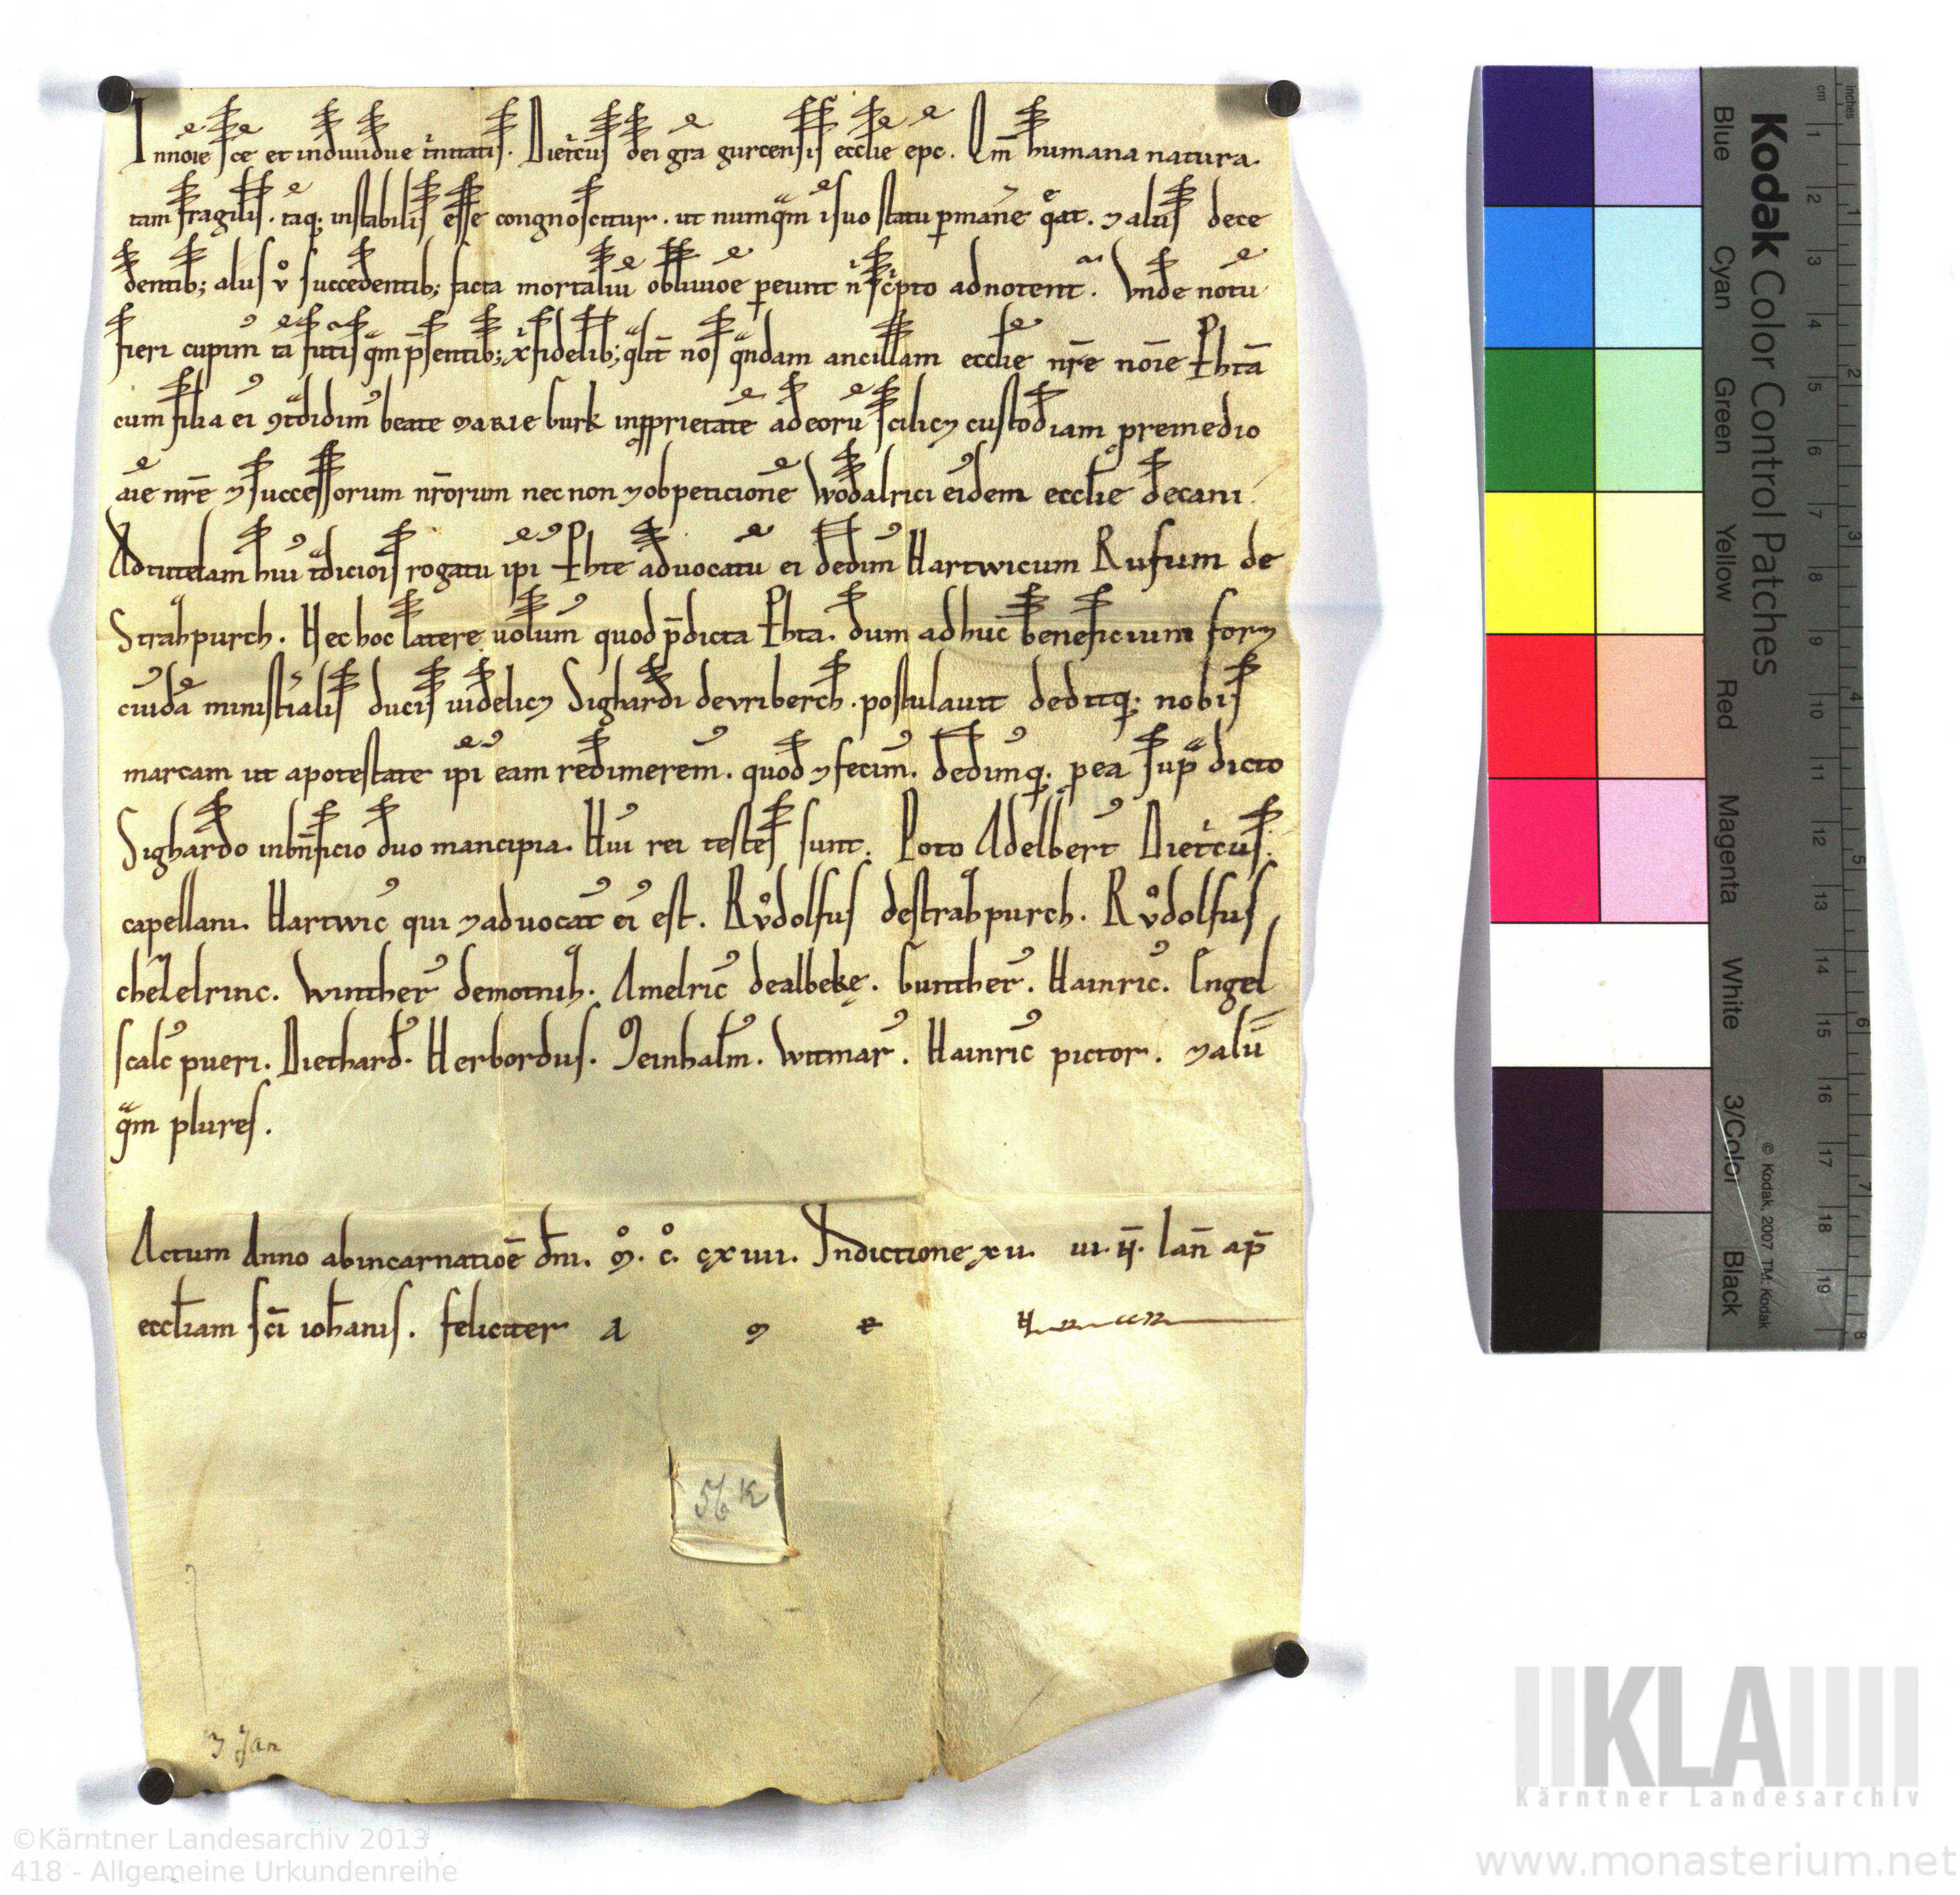 Innoıe sce et indiuidue trinitatis. Dietricus dei gra gurcensis ecclie epc. Qm humana natura.
tam fragilis. taq; instabilis esse congnoscitur. ut numqm i suo statu pmane qat. 7 aliis dece
dentib; aliis v succedentib; facta mortaliu obliuioe peunt n scripto adnotent. Vnde notu
fieri cupim ta futis qm psentib; xfidelib; qlit nos qndam ancillam ecclie nre noie
cum filia ei beate marie burk inpprietate ad eoru scilic7 custodiam premedio
aie nre 7 successorum nrorum nec non 7 ob peticione Wodalrici eidem ecclie decani.
Ad tutelam hui tdiciois rogatu ipi aduocatu ei dedim Hartwicum Rufum de
Straspurch. Hec hoc latere uolum quod pdicta dum ad huc beneficium for7
cuida ministialis ducis uidelic7 Sighardi de vriberch. postulauit deditq; nobis
marcam ut a potestate ipi eam redimerem. quod 7 fecim. dedimq; pea sup dicto
Sighardo in bnficio duo mancipia. Hui rei testes sunt. Poto Adelbert Dietricus.
capellani. Hartwic qui 7 aduocat ei est. Rvdolfus de straspurch. Rvdolfus
Winther de motnih. Amelric de albeke. Gunther. Hainric. Engel
scalc pueri. Diethard. Herbordus. Witmar. Hainric pictor. 7 alii
qm plures.
Actum Anno ab incarnatioe dni. M. C. LXIIII. Indictione xii. iii. N. Ian ap
eccliam sci iohanis. feliciter a m e n
56 K
3 Jan
Kodak Color Control Patches
Blue
Cyan
Green
Yellow
Red
Magenta
White
3/Color
Black
© Kodak, 2007 TM: Kodak
cm 1 2 3 4 5 6 7 8 9 10 11 12 13 14 15 16 17 18 19
inches 1 2 3 4 5 6 7 8
KLA
Kärntner Landesarchiv
©Kärntner Landesarchiv 2013
418 - Allgemeine Urkundenreihe
www.monasterium.net